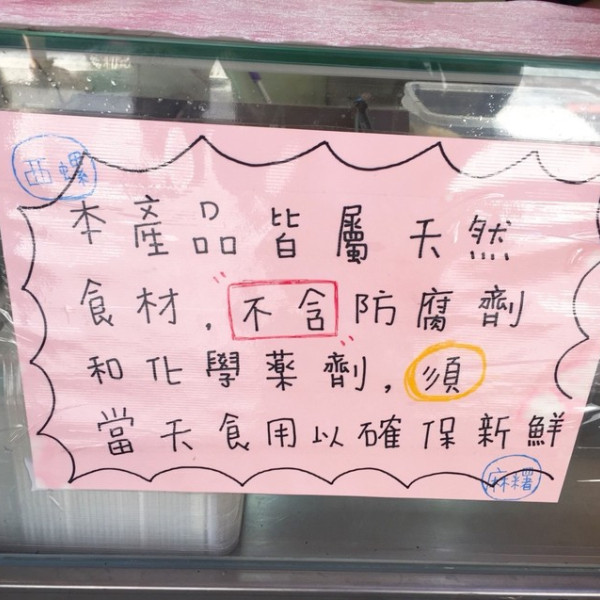 西螺
本產品皆屬天然
食材，不含防腐劑
和化學藥劑，須
當天食用以確保新鮮
麻糬